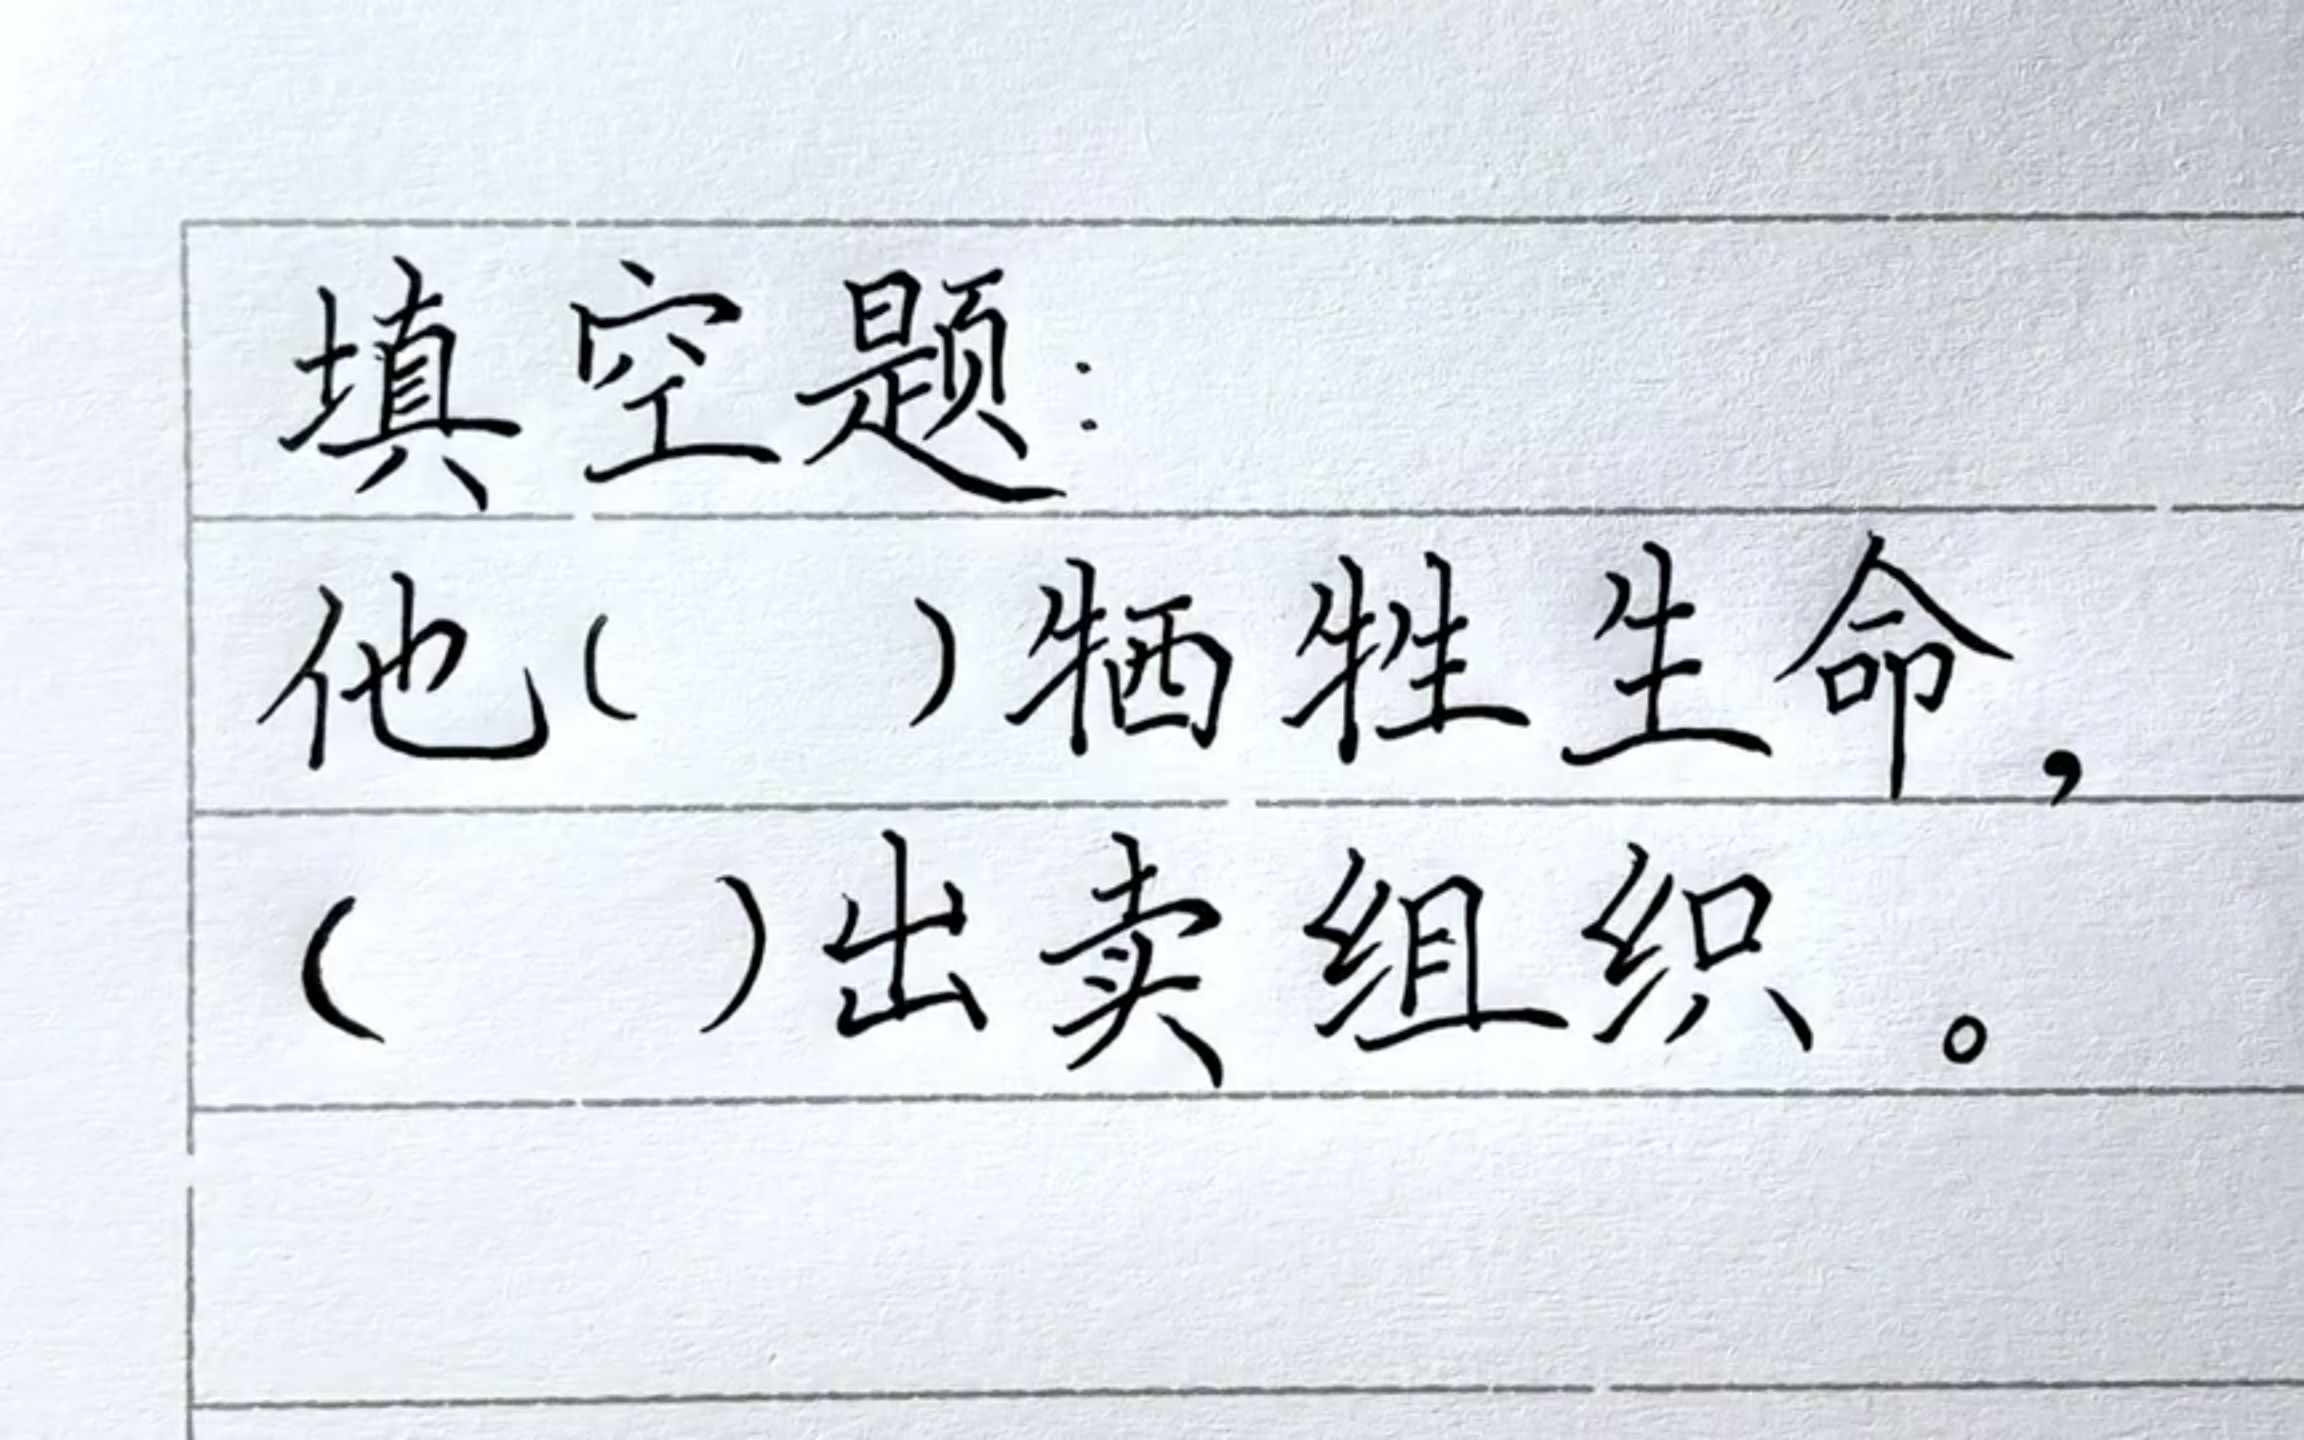 填空题:
他(  )牺牲生命,
(  )出卖组织。